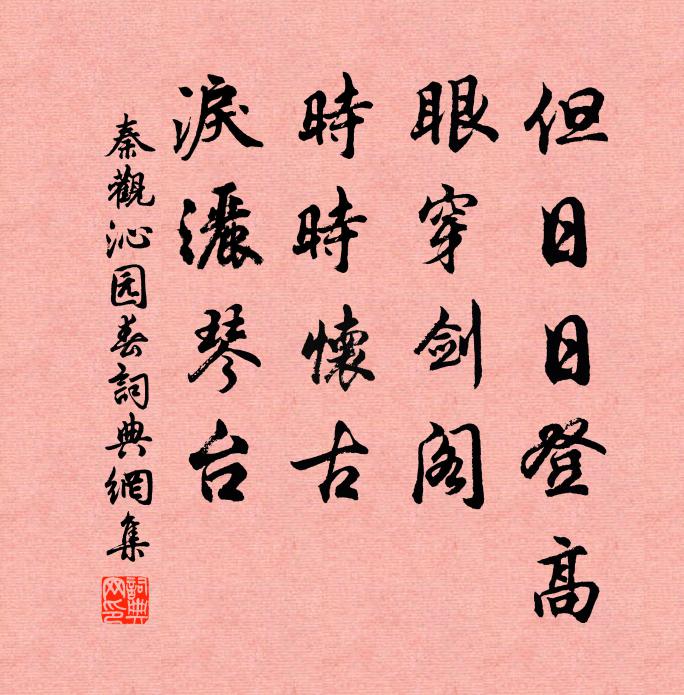 但日日登高
眼穿剑阁
時時懷古
淚灑琴台
秦觀沁园春詞典網集
詞典网印